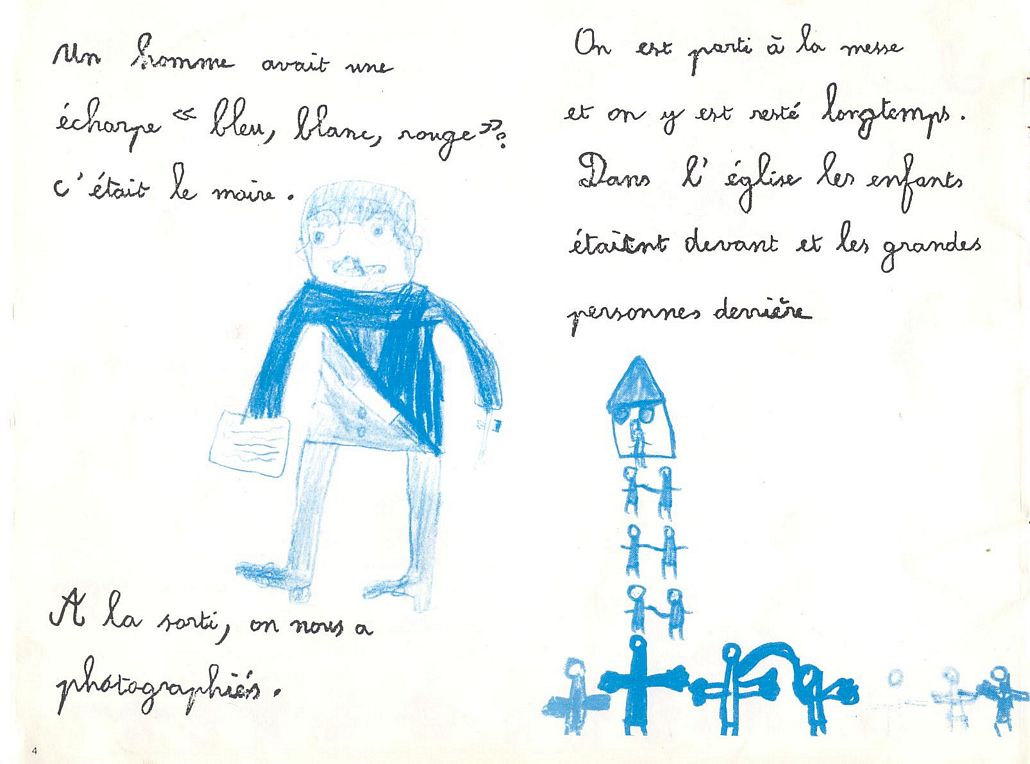 Un homme avait une
écharpe « bleu, blanc, rouge ».
c'était le maire.
A la sorti, on nous a
photographiés.
4
On est parti à la messe
et on y est resté longtemps.
Dans l'église les enfants
étaient devant et les grandes
personnes derrière